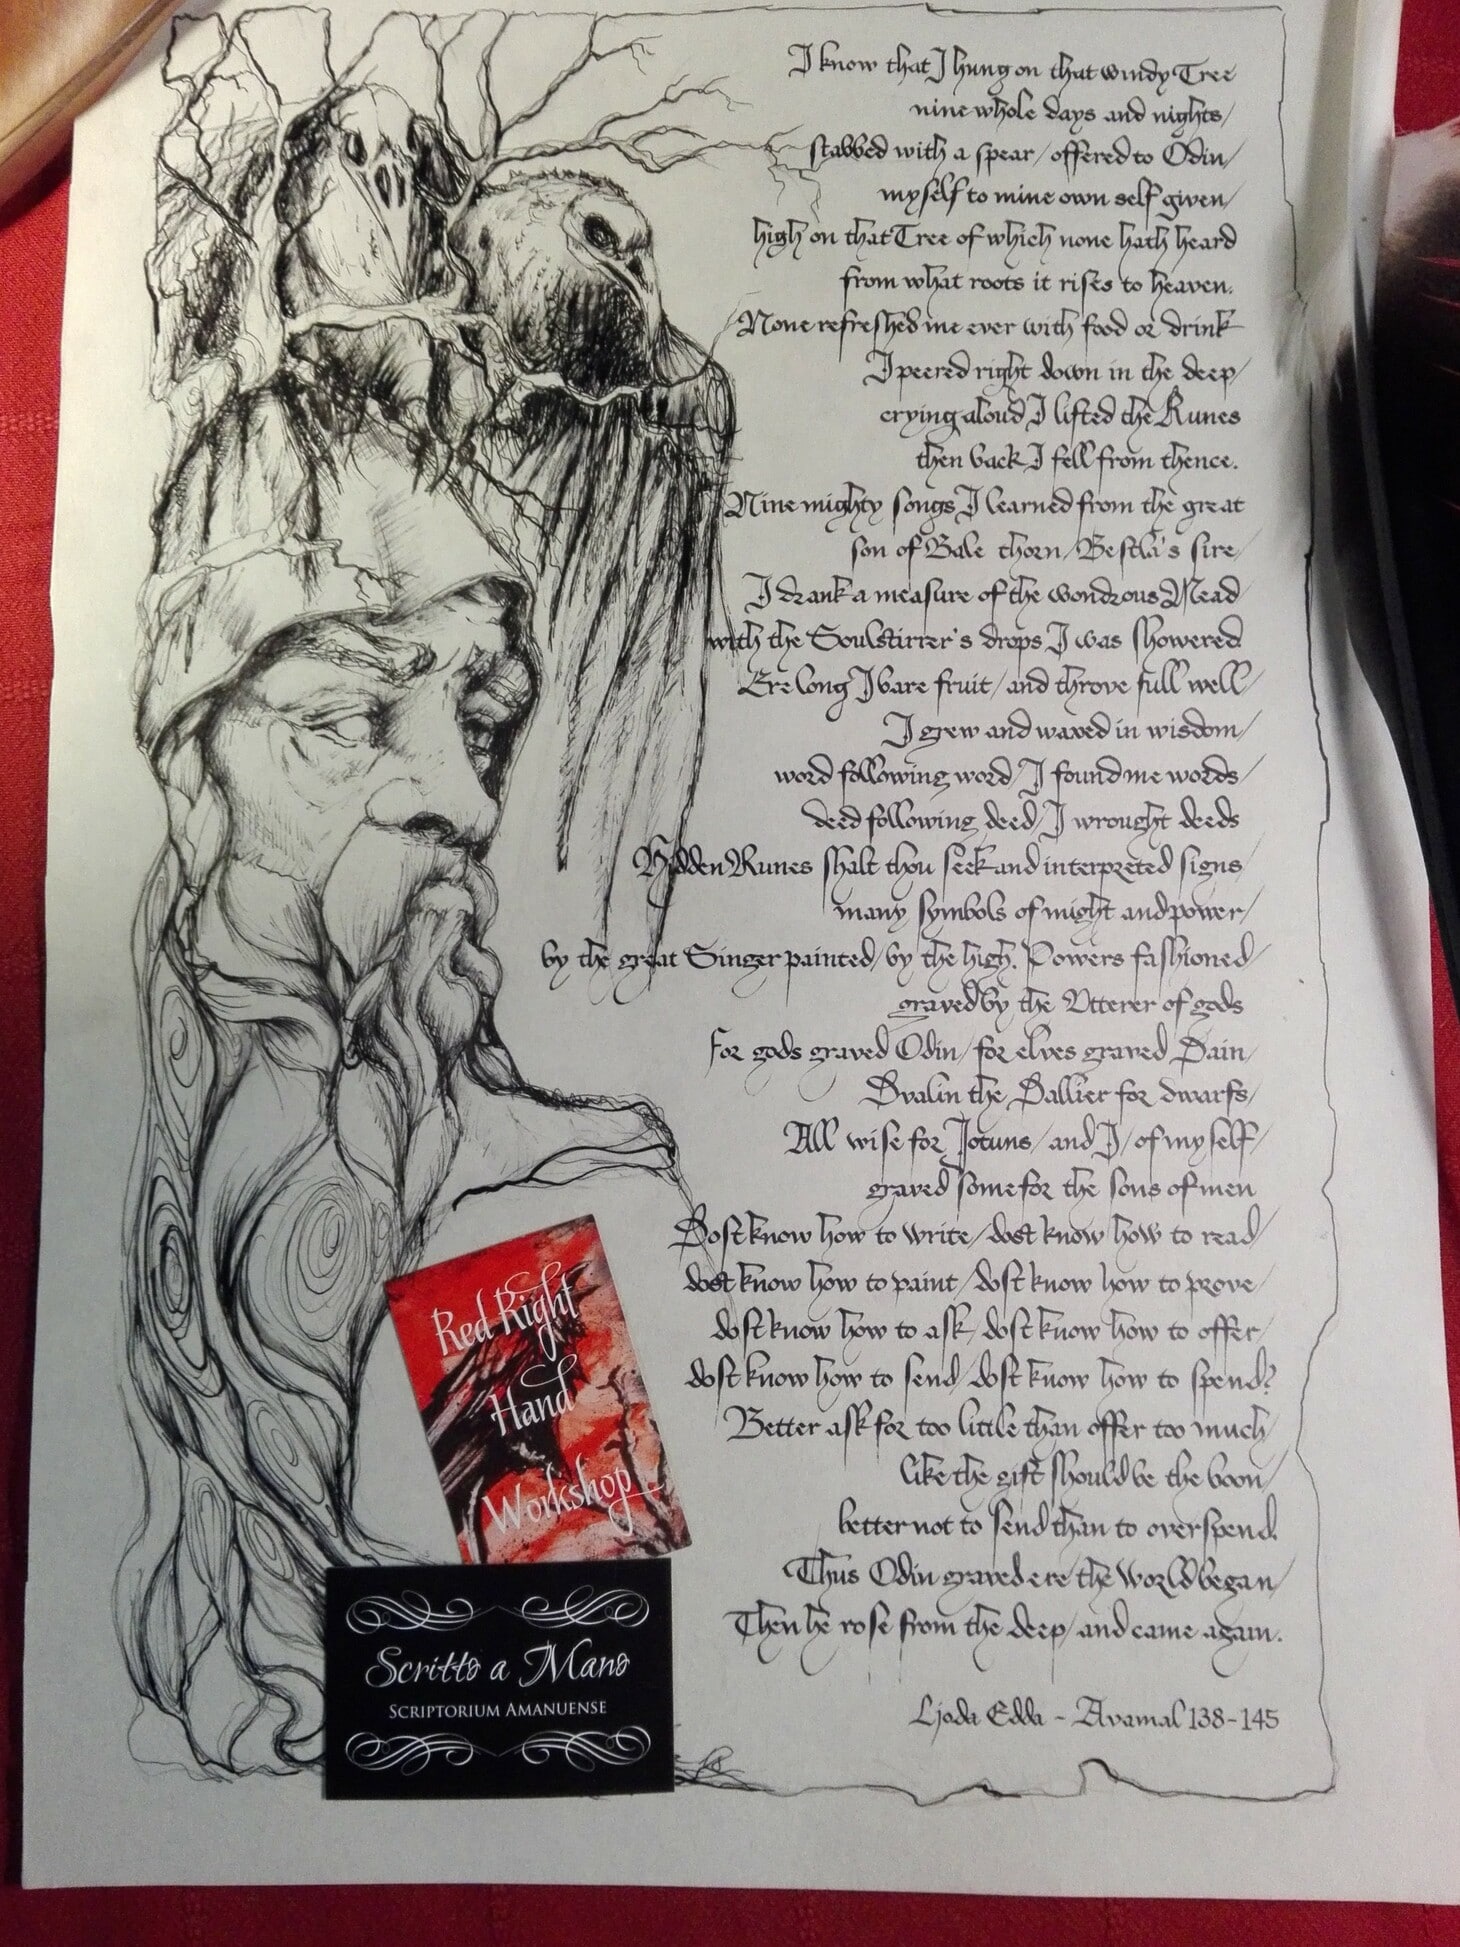 I know that I hung on that windy Tree
nine whole days and nights/
stabbed with a spear/ offered to Odin/
myself to mine own self given/
high on that Tree of which none hath heard
from what roots it rises to heaven.
None refreshed me ever with food or drink
I peered right down in the deep/
crying aloud I lifted the Runes
then back I fell from thence.
Nine mighty songs I learned from the great
son of Bale thorn/ Bestla's sire/
I drank a measure of the wondrous Mead/
with the Soulstirrer's drops I was showered.
Ere long I bare fruit/ and throve full well/
I grew and waxed in wisdom/
word following word/ I found me words/
deed following deed/ I wrought deeds
Hidden Runes shalt thou seek and interpreted signs/
many symbols of might and power/
by the great Singer painted/ by the high Powers fashioned/
graved by the Utterer of gods
For gods graved Odin/ for elves graved Dain/
Dvalin the Dallier for dwarfs/
All wise for Jotuns/ and I/ of myself/
graved some for the sons of men
Dost know how to write/ dost know how to read/
dost know how to paint/ dost know how to prove/
dost know how to ask/ dost know how to offer/
dost know how to send/ dost know how to spend?
Better ask for too little than offer too much/
like the gift should be the boon/
better not to send than to overspend.
Thus Odin graved ere the World began/
Then he rose from the deep/ and came again.
Ljoda Edda - Avamal 138-145
Red Right
Hand
Workshop
Scritto a Mano
SCRIPTORIUM AMANUENSE